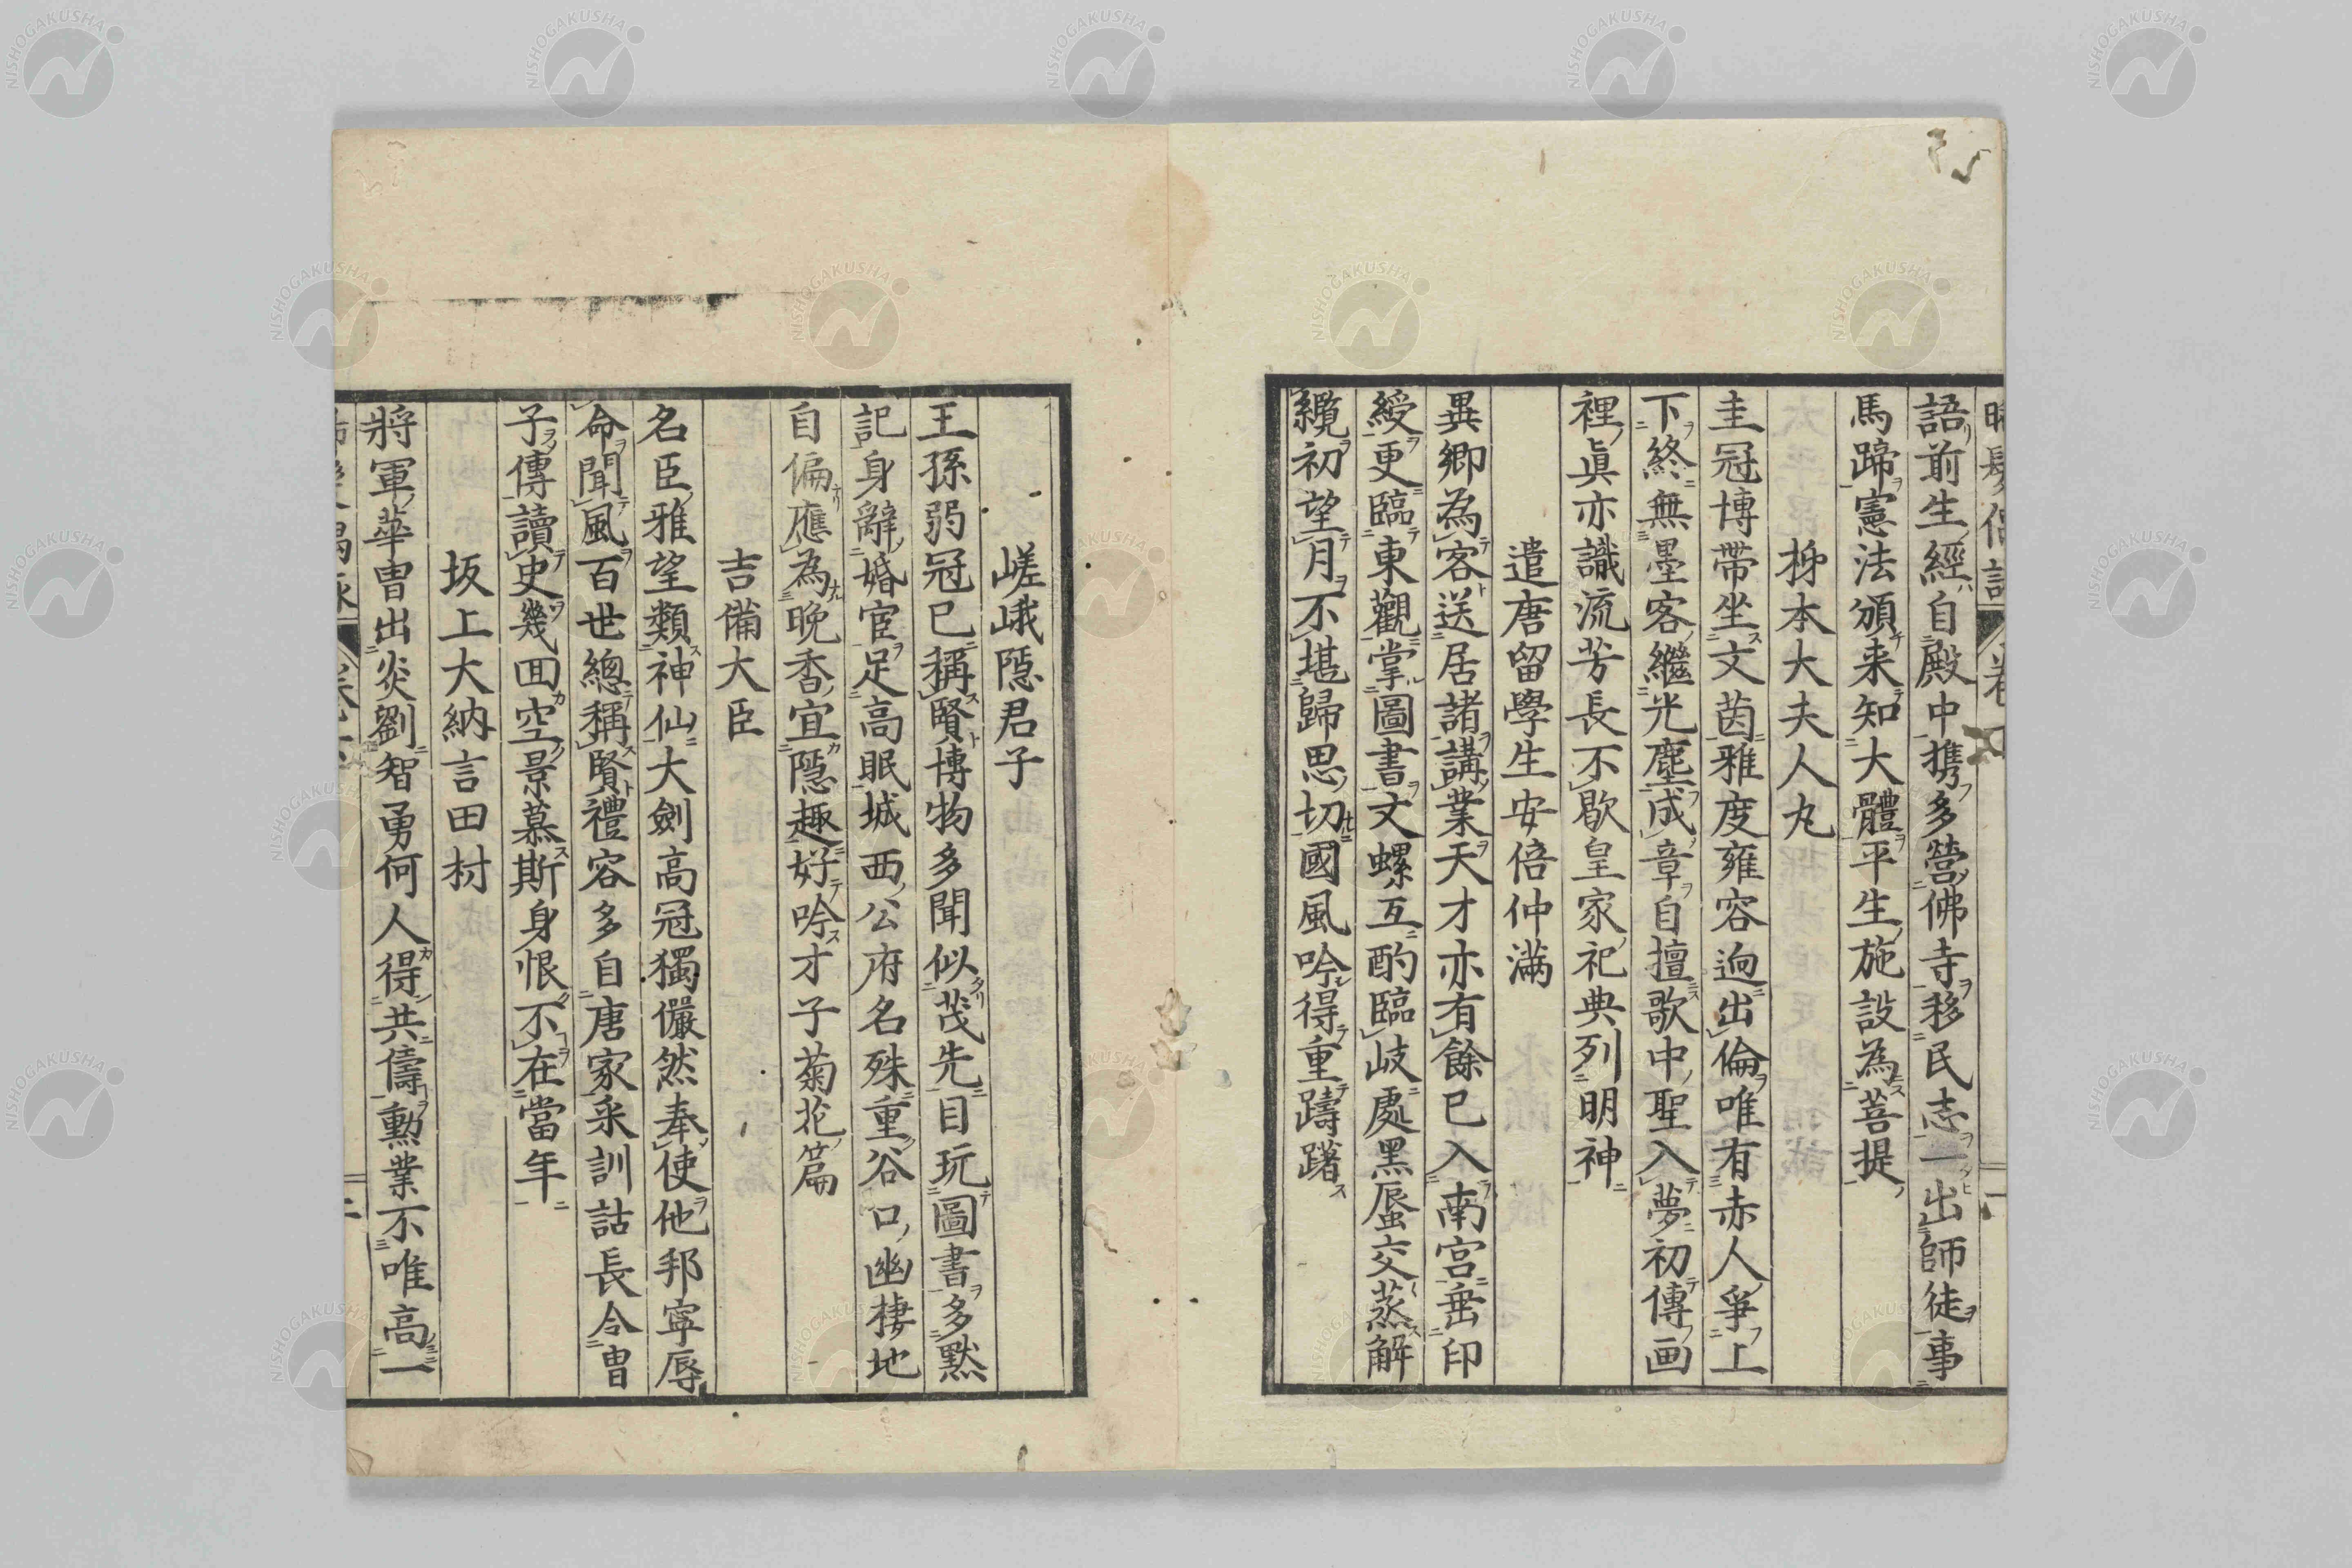 語前生經自殿中携多營佛寺移民志一出師徒事
馬蹄憲法頒来知大體平生施設為菩提
柹本大夫人丸
圭冠博帶坐文茵雅度雍容逈出倫唯有赤人爭上
下終無墨客繼光塵成章自擅歌中聖入夢初傳画
裡眞亦識流芳長不歇皇家祀典列明神
遣唐留學生安倍仲滿
異鄉為客送居諸講業天才亦有餘已入南宮垂印
綬更臨東觀掌圖書文螺互酌臨岐處黑蜃交蒸解
纜初望月不堪歸思切國風吟得重躊躇
嵯峨隱君子
王孫弱冠已稱賢博物多聞似茂先目玩圖書多黙
記身辭婚宦足高眠城西公府名殊重谷口幽棲地
自偏應為晚香宜隱趣好吟才子菊花篇
吉備大臣
名臣雅望類神仙大劍高冠獨儼然奉使他邦寧辱
命聞風百世總稱賢禮容多自唐家采訓詁長令曹
子傳讀史幾囬空景慕斯身恨不在當年
坂上大納言田村
將軍華冑出炎劉智勇何人得共儔勲業不唯高一
NISHOGAKUSHA